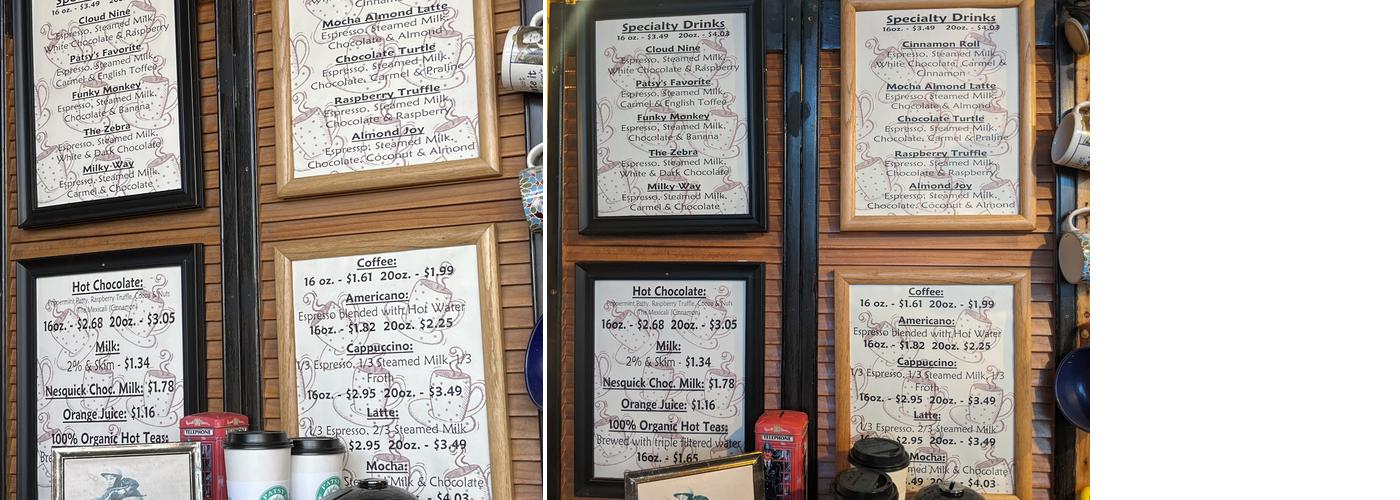 Cloud Nine
Espresso, Steamed Milk,
White Chocolate & Raspberry
Patsy's Favorite
Espresso, Steamed Milk,
Carmel & English Toffee
Funky Monkey
Espresso, Steamed Milk,
Chocolate & Banana
The Zebra
Espresso, Steamed Milk,
White & Dark Chocolate
Milky Way
Espresso, Steamed Milk,
Carmel & Chocolate
Mocha Almond Latte
Espresso, Steamed Milk,
Chocolate & Almond
Chocolate Turtle
Espresso, Steamed Milk,
Chocolate, Carmel & Praline
Raspberry Truffle
Espresso, Steamed Milk,
Chocolate & Raspberry
Almond Joy
Espresso, Steamed Milk,
Chocolate, Coconut & Almond
Hot Chocolate:
Peppermint Patty, Raspberry Truffle, Cocoa & Nuts
The Mexicali (Cinnamon)
16oz. - $2.68 20oz. - $3.05
Milk:
2% & Skim - $1.34
Nesquick Choc. Milk: $1.78
Orange Juice: $1.16
100% Organic Hot Teas:
Coffee:
16 oz. - $1.61 20oz. - $1.99
Americano:
Espresso blended with Hot Water
16oz. - $1.82 20oz. $2.25
Cappuccino:
1/3 Espresso, 1/3 Steamed Milk, 1/3
Froth
16oz. - $2.95 20oz. - $3.49
Latte:
$2.95 20oz. - $3.49
Mocha:
Milk & Chocolate
- $4.03
TELEPHONE
PATSY
Specialty Drinks
16 oz. - $3.49 20oz. - $4.03
Cloud Nine
Espresso, Steamed Milk,
White Chocolate & Raspberry
Patsy's Favorite
Espresso, Steamed Milk,
Carmel & English Toffee
Funky Monkey
Espresso, Steamed Milk,
Chocolate & Banana
The Zebra
Espresso, Steamed Milk,
White & Dark Chocolate
Milky Way
Espresso, Steamed Milk,
Carmel & Chocolate
Specialty Drinks
16oz. - $3.49 20oz. - $4.03
Cinnamon Roll
Espresso, Steamed Milk,
White Chocolate, Carmel &
Cinnamon
Mocha Almond Latte
Espresso, Steamed Milk,
Chocolate & Almond
Chocolate Turtle
Espresso, Steamed Milk,
Chocolate, Carmel & Praline
Raspberry Truffle
Espresso, Steamed Milk,
Chocolate & Raspberry
Almond Joy
Espresso, Steamed Milk,
Chocolate, Coconut & Almond
Hot Chocolate:
Peppermint Patty, Raspberry Truffle, Cocoa & Nuts
The Mexicali (Cinnamon)
16oz. - $2.68 20oz. - $3.05
Milk:
2% & Skim - $1.34
Nesquick Choc. Milk: $1.78
Orange Juice: $1.16
100% Organic Hot Teas:
Brewed with triple filtered water
16oz. - $1.65
Coffee:
16 oz. - $1.61 20oz. - $1.99
Americano:
Espresso blended with Hot Water
16oz. - $1.82 20oz. $2.25
Cappuccino:
1/3 Espresso, 1/3 Steamed Milk, 1/3
Froth
16oz. - $2.95 20oz. - $3.49
Latte:
$2.95 20oz. - $3.49
Mocha:
Milk & Chocolate
- $4.03
TELEPHONE